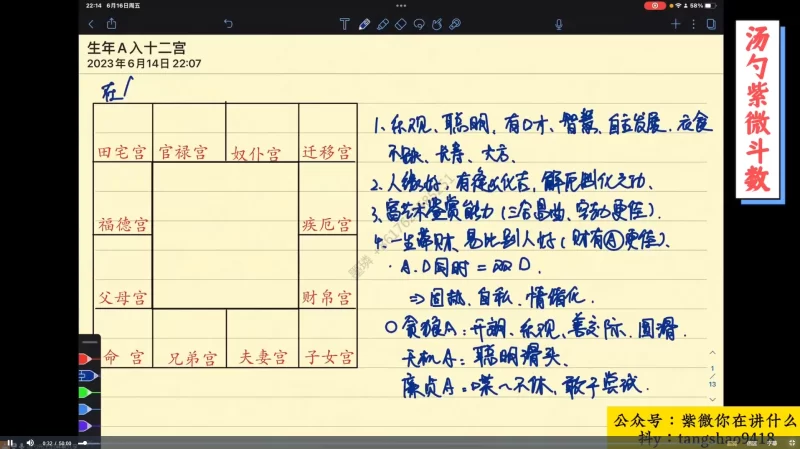 22:14 6月16日周五
58%
生年A入十二宫
2023年6月14日 22:07
在
田宅宫 官禄宫 奴仆宫 迁移宫
福德宫 疾厄宫
父母宫 财帛宫
命 宫 兄弟宫 夫妻宫 子女宫
1、乐观、聪明、有口才、智慧、自立发展、衣食
不缺、长寿、大方、
2、人缘好、有逢凶化吉,解厄制化之功、
3、富艺术鉴赏能力(三合昌曲、
更佳)、
4、一生带财、易比别人好(财有Ⓐ更佳)、
A.D同时=双D.
⇒固执、自私、情绪化、
○贪狼A:开朗、乐观、善交际、圆滑.
天机A:聪明滑头、
廉贞A:喋~不休、敢于尝试.
汤勺紫微斗数
1
13
公众号:紫微你在讲什么
抖y:tangshao9418